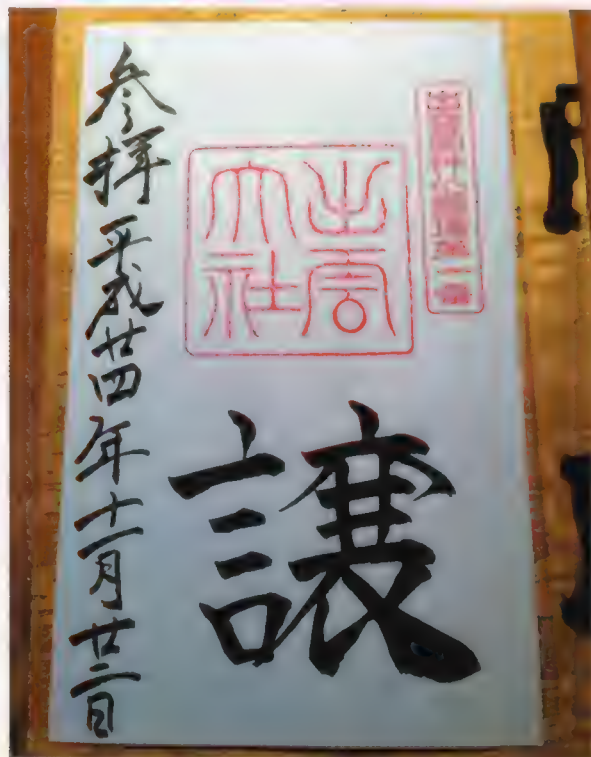 出雲
大社
譲
参拝 平成廿四年十一月廿二日